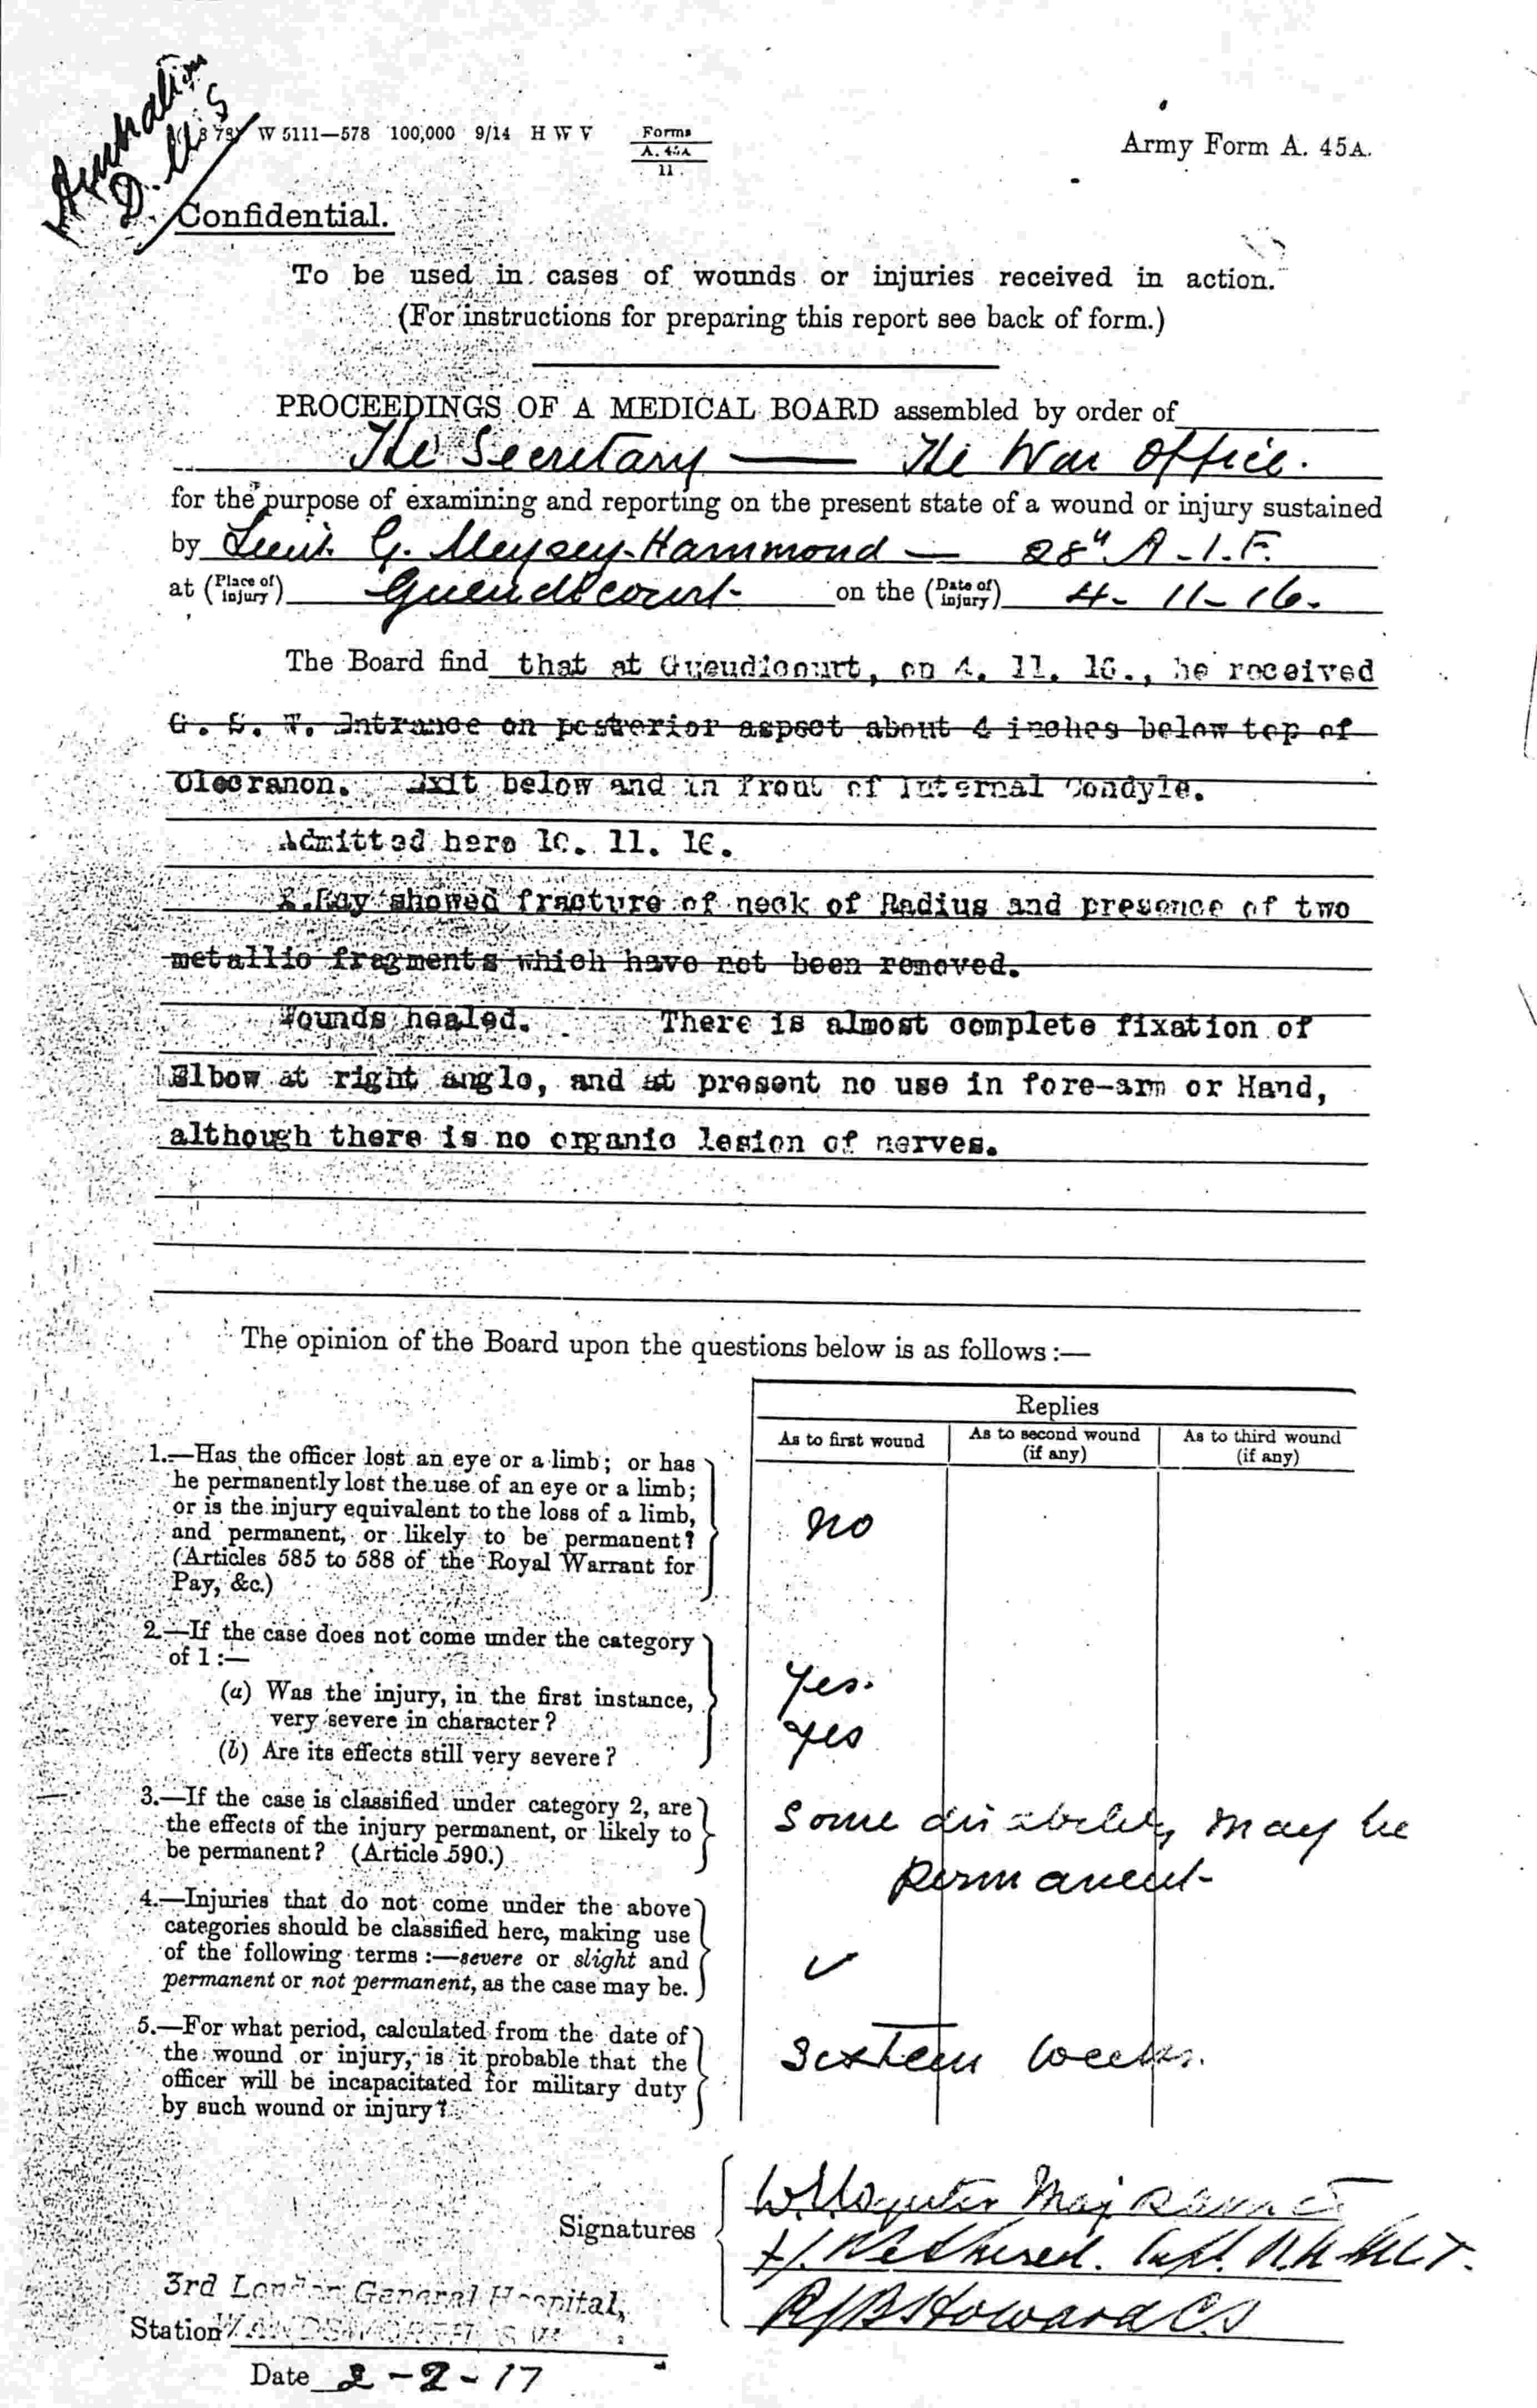 Australian
D. M. S
W 5111—578 100,000 9/14 H W V Forms
A. 45A
11
Army Form A. 45A.
Confidential.
To be used in cases of wounds or injuries received in action.
(For instructions for preparing this report see back of form.)
PROCEEDINGS OF A MEDICAL BOARD assembled by order of
The Secretary — The War Office.
for the purpose of examining and reporting on the present state of a wound or injury sustained
by Lieut. G. Meysey-Hammond — 28th A.I.F.
at (Place of injury) Gueudecourt on the (Date of injury) 4-11-16.
The Board find that at Gueudicourt, on 4. 11. 16., he received
G. S. W. Entrance on posterior aspect about 4 inches below top of
Olecranon. Exit below and in front of Internal Condyle.
Admitted here 10. 11. 16.
X.Ray showed fracture of neck of Radius and presence of two
metallic fragments which have not been removed.
Wounds healed. There is almost complete fixation of
Elbow at right angle, and at present no use in fore-arm or Hand,
although there is no organic lesion of nerves.
The opinion of the Board upon the questions below is as follows :—
Replies
As to first wound
As to second wound (if any)
As to third wound (if any)
1.—Has the officer lost an eye or a limb; or has
he permanently lost the use of an eye or a limb;
or is the injury equivalent to the loss of a limb,
and permanent, or likely to be permanent?
(Articles 585 to 588 of the Royal Warrant for
Pay, &c.)
no
2.—If the case does not come under the category
of 1 :—
(a) Was the injury, in the first instance,
very severe in character?
Yes.
(b) Are its effects still very severe?
yes
3.—If the case is classified under category 2, are
the effects of the injury permanent, or likely to
be permanent? (Article 590.)
Some disability may be
permanent
4.—Injuries that do not come under the above
categories should be classified here, making use
of the following terms :—severe or slight and
permanent or not permanent, as the case may be.
5.—For what period, calculated from the date of
the wound or injury, is it probable that the
officer will be incapacitated for military duty
by such wound or injury?
Sixteen weeks.
Signatures
Maj
Capt.
Howard
3rd London General Hospital,
Station WANDSWORTH S.W.
Date 2-2-17